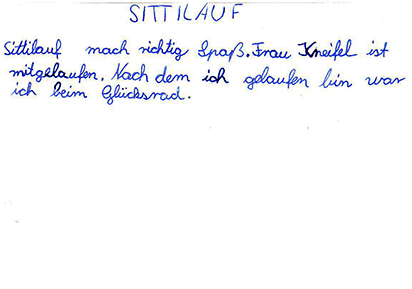 SITTILAUF
Sittilauf mach richtig Spaß. Frau Kneifel ist
mitgelaufen. Nach dem ich gelaufen bin war
ich beim Glücksrad.